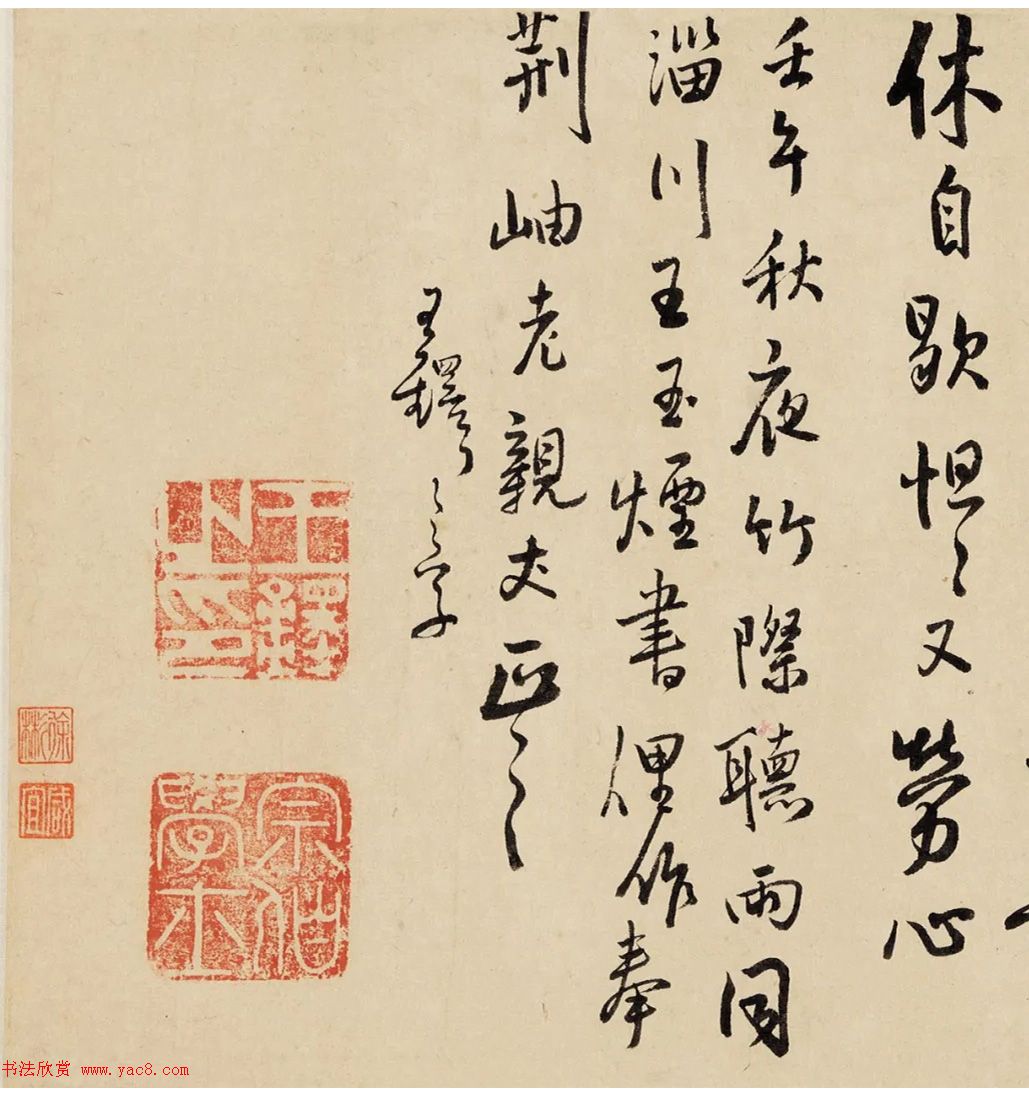 休自歇怛〻又勞心
壬午秋夜竹際聽雨同
淄川王玉煙書俚作奉
荆岫老親丈正〻〻
王鐸〻字
王鐸之印
宗伯學士
書法欣赏 www.yac8.com